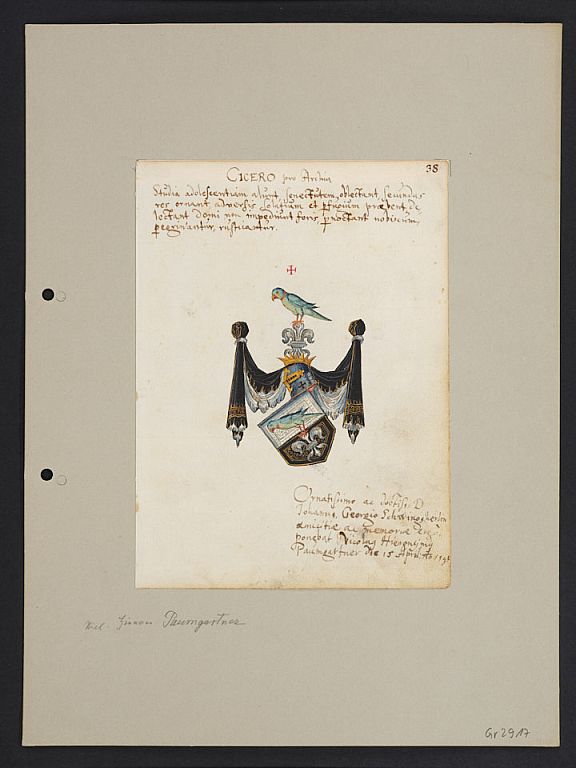 38
CICERO pro Archia
Studia adolescentiam alunt, senectutem oblectant, secundas
res ornant, adversis solatium et pfugium præbent de
lectant domi non impediunt foris pnoctant nobiscum,
pegrinantur, rusticantur.
Ornatissimo ac doctiss: D
Johanni Georgio
amicitiæ ac memoriæ ergo
ponebat Nicolaus Hieronymus
Paumgartner die 15 April. Ao
Paumgartner
Gr 2917